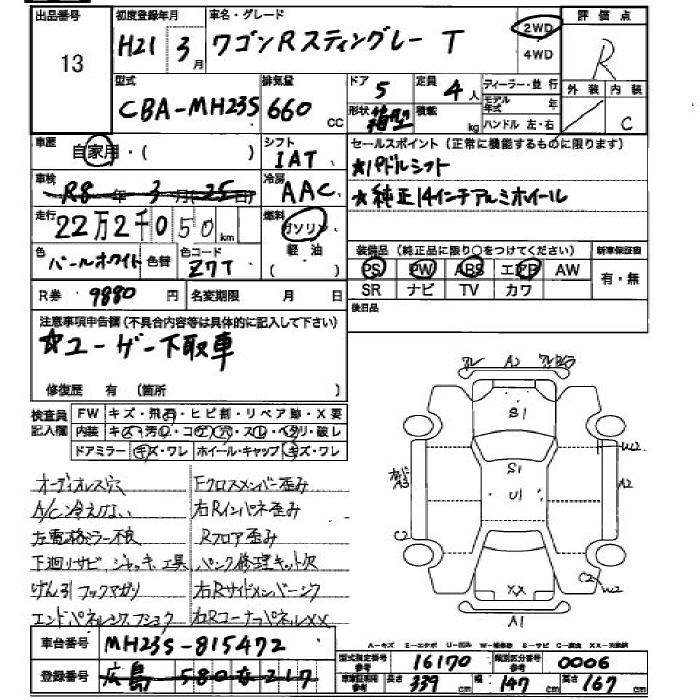 出品番号 初度登録年月 車名・グレード 評価点
13 H21 3月 ワゴンRスティングレー T 2WD 4WD R
型式 排気量 ドア 定員 ディーラー・並行 外装 内装
CBA-MH23S 660cc 5 4人 モデル年式 年
形状 箱型 積載 kg ハンドル 左・右 C
車歴 シフト セールスポイント(正常に機能するものに限ります)
自家用・( ) IAT ☆パドルシフト
車検 冷房
R8年3月(25日) AAC ☆純正14インチアルミホイール
走行 燃料
22万2千050km ガソリン 軽油
色 色替 色コード 装備品(純正品に限り○をつけてください) 新車保証書
パールホワイト Z7T PS PW ABS エアB AW 有・無
R券 9880円 名変期限 月 日 SR ナビ TV カワ
注意事項申告欄(不具合内容等は具体的に記入して下さい) 後日品
☆ユーザー下取車
修復歴 有 (箇所 )
検査員記入欄 FW キズ・飛石・ヒビ割・リペア跡・X要
内装 キズ・汚レ・コゲ・穴・スレ・ヘタリ・破レ
ドアミラー キズ・ワレ ホイール・キャップ キズ・ワレ
オーディオレス Fクロスメンバー歪み
A/C冷えない 右Rインパネ歪み
左電格ミラー不良 Rフロア歪み
下廻りサビ ジャッキ、工具 パンク修理キット欠
けん引フックマガリ 右Rサイドメンバー
エンドパネル 右RコーナーパネルXX
A2
S1
W2
S1
U1
A2
C2
C2 W2
XX
A1
A-キズ E-エクボ U-凹み W-補修跡 S-サビ C-腐食 XX-交換済
車台番号 MH23S-815472 型式指定番号参考 16170 類別区分番号参考 0006
登録番号 広島 580 217 長さ 339cm 幅 147cm 高さ 167cm